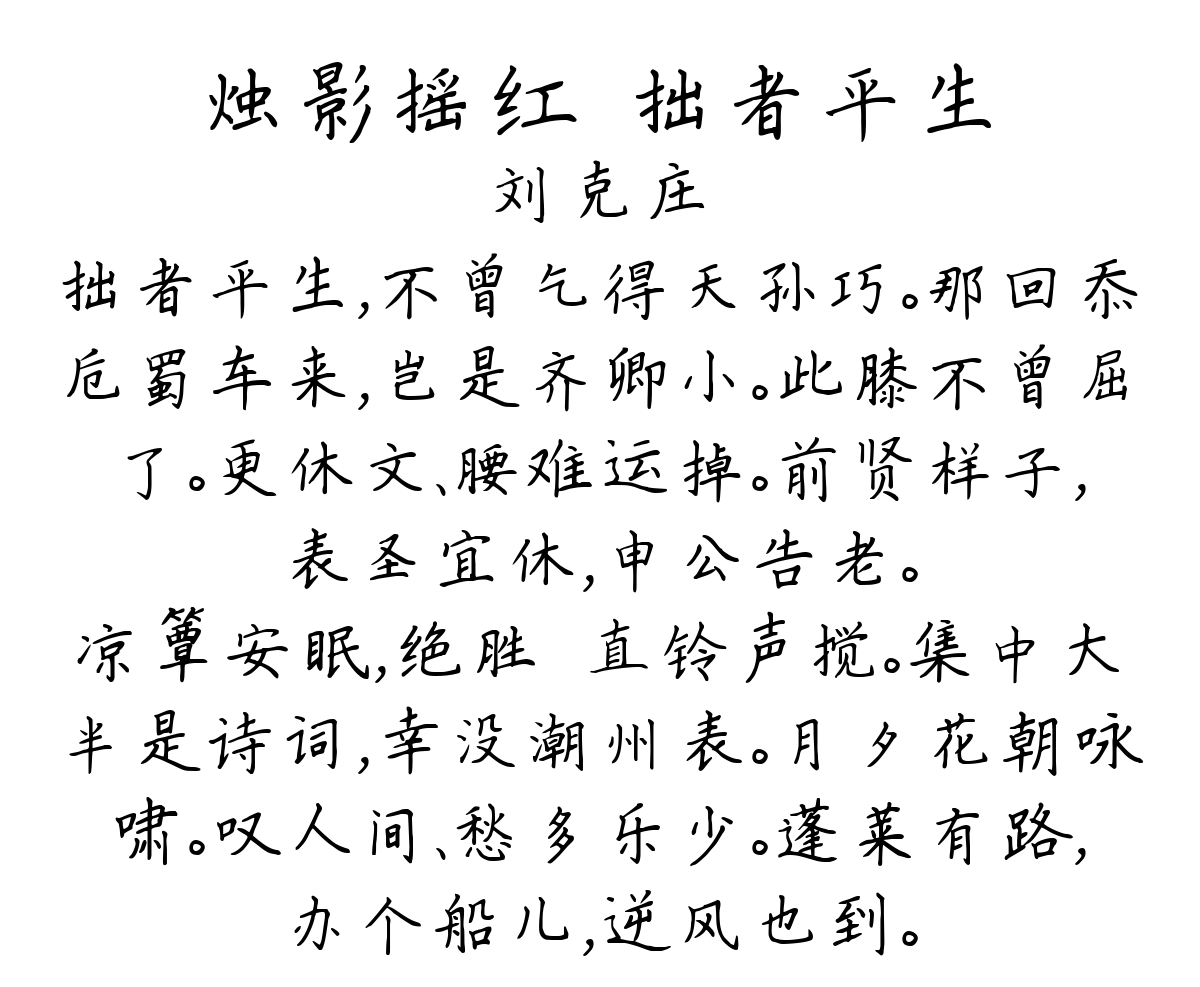 烛影摇红 拙者平生
刘克庄
拙者平生,不曾乞得天孙巧。那回忝
卮蜀车来,岂是齐卿小。此膝不曾屈
了。更休文、腰难运掉。前贤样子,
表圣宜休,申公告老。
凉簟安眠,绝胜 直铃声搅。集中大
半是诗词,幸没潮州表。月夕花朝咏
啸。叹人间、愁多乐少。蓬莱有路,
办个船儿,逆风也到。